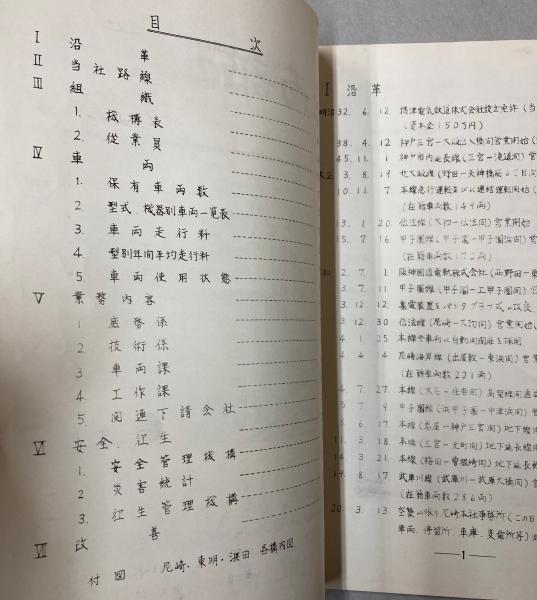 目次
I 沿革
II 当社路線
III 組織
1. 機構表
2. 従業員
IV 車両
1. 保有車両数
2. 型式、機器別車両一覧表
3. 車両走行料
4. 型別年間平均走行料
5 車両使用状態
V 業務内容
1 庶務係
2. 技術係
3. 車両課
4. 工作課
5. 関連下請会社
VI 安全、衛生
1. 安全管理機構
2 災害統計
3. 衛生管理機構
VII 改善
付図 尼崎・東明・浜田 各構内図
I 沿革
明治32. 6. 12 摂津電気鉄道株式会社設立免許(当
(資本金150万円)
38. 4. 12 神戸三宮−大阪出入橋間営業開始(
45. 11. 1 神戸市内延長線(三宮−滝道間)営
3. 8. 19 北大阪線(野田−天神橋筋6丁目間
10. 11. 7 本線急行運転並びに連結運転開始(
(在籍車両数149両)
13. 1. 20 伝法線(大物−伝法間)営業開始
15. 7. 16 甲子園線(甲子園−甲子園浜間)営
2. 7. 1 阪神国道電軌株式会社(西野田−東
3. 7. 11 甲子園線(甲子園−上甲子園間)営
3. 12 12 集電装置をパンタグラフ式に改良
3 12 30 伝法線(尼崎−大物間)営業開始(
4. 1 25 本線全車両に自動開閉扉を採用
4 4 14 尼崎海岸線(出屋敷−東浜間)営業
(在籍車両数221両)
4. 7. 27 本線(大石−住吉間)高架線開通
5 7 9 甲子園線(浜甲子園−中津浜間)営
8. 6. 17 本線(岩屋−神戸三宮間)地下線
11. 3. 18 本線(三宮−元町間)地下延長線
14. 3. 21 本線(梅田−曽根崎間)地下延長
8. 17 武庫川線(武庫川−武庫大橋間)営
(在籍車両数286両)
20. 3. 13. 空襲に依り尼崎本社事務所(この日
車両、停留所、車庫、変電所等)
1